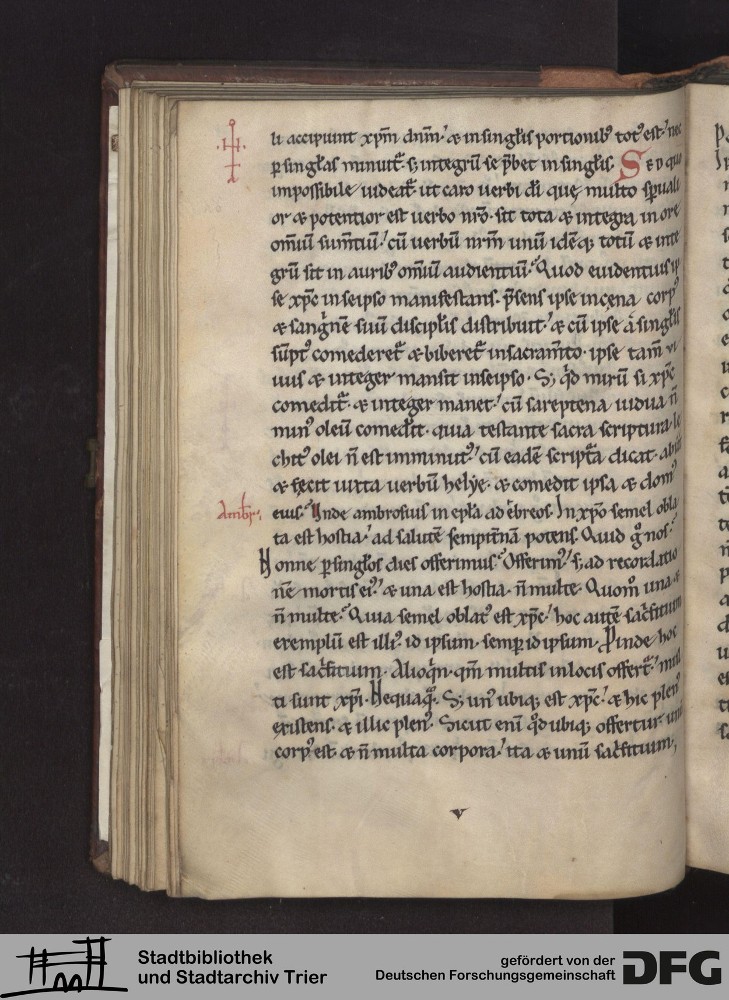 li accipiunt xp̄m dn̄m; & in singul̄is portionib; tot' est; nec
p singlas minuit̄. s; integrū se p̄bet in singlis. Sed quo
impossibile uideat̄ ut caro uerbi dī quę multo sp̄uali
or & potentior est uerbo nr̄o. sit tota & integra in ore
omīū sum̄tiū; cū uerbū nr̄m unū idēq; totū & inte
grū sit in aurib; omīū audientiū; Quod euidentius ip
se xp̄c in seipso manifestans. p̄sens ipse in cęna corp'
& sangnē suū discipl̄is distribuit; & cū ipse a singl̄is
sūpt' comederet̄ & biberet̄ in sacram̄to. ipse tam̄ vi
uus & integer mansit in seipso. S; qd mirū si xp̄c
comedit̄. & integer manet; cū sareptena uidua n̄
min' oleū comedit. quia testante sacra scriptura le
chit' olei n̄ est imminut'; cū eadē scripta dicat. abiit
& fecit iuxta uerbū helye. & comedit ipsa & dom'
Ambr.
eius. Vnde ambrosius in epl̄a ad ebreos. In xp̄o semel obla
ta est hostia; ad salutē sempit̄nā potens. Quid g° nos;
Nonne p singlos dies offerimus; Offerim'; s; ad recordatio
nē mortis ei'; & una est hostia. n̄ multe. Quom° una &
n̄ multe; Quia semel oblat' est xp̄c; hoc autē sacfitium
exemplū est illi'; id ipsum. semp id ipsum. Pinde hoc
est sacfitium. Alioqn. qm̄ multis in locis offert̄; mul
ti sunt xp̄i. Nequaq̄. S; un' ubiq; est xp̄c; & hic plen'
existens. & illic plen'. Sicut enī qd ubiq; offertur. unū
corp' est. & n̄ multa corpora; ita & unū sacfitium;
v
Stadtbibliothek
und Stadtarchiv Trier
gefördert von der
Deutschen Forschungsgemeinschaft
DFG